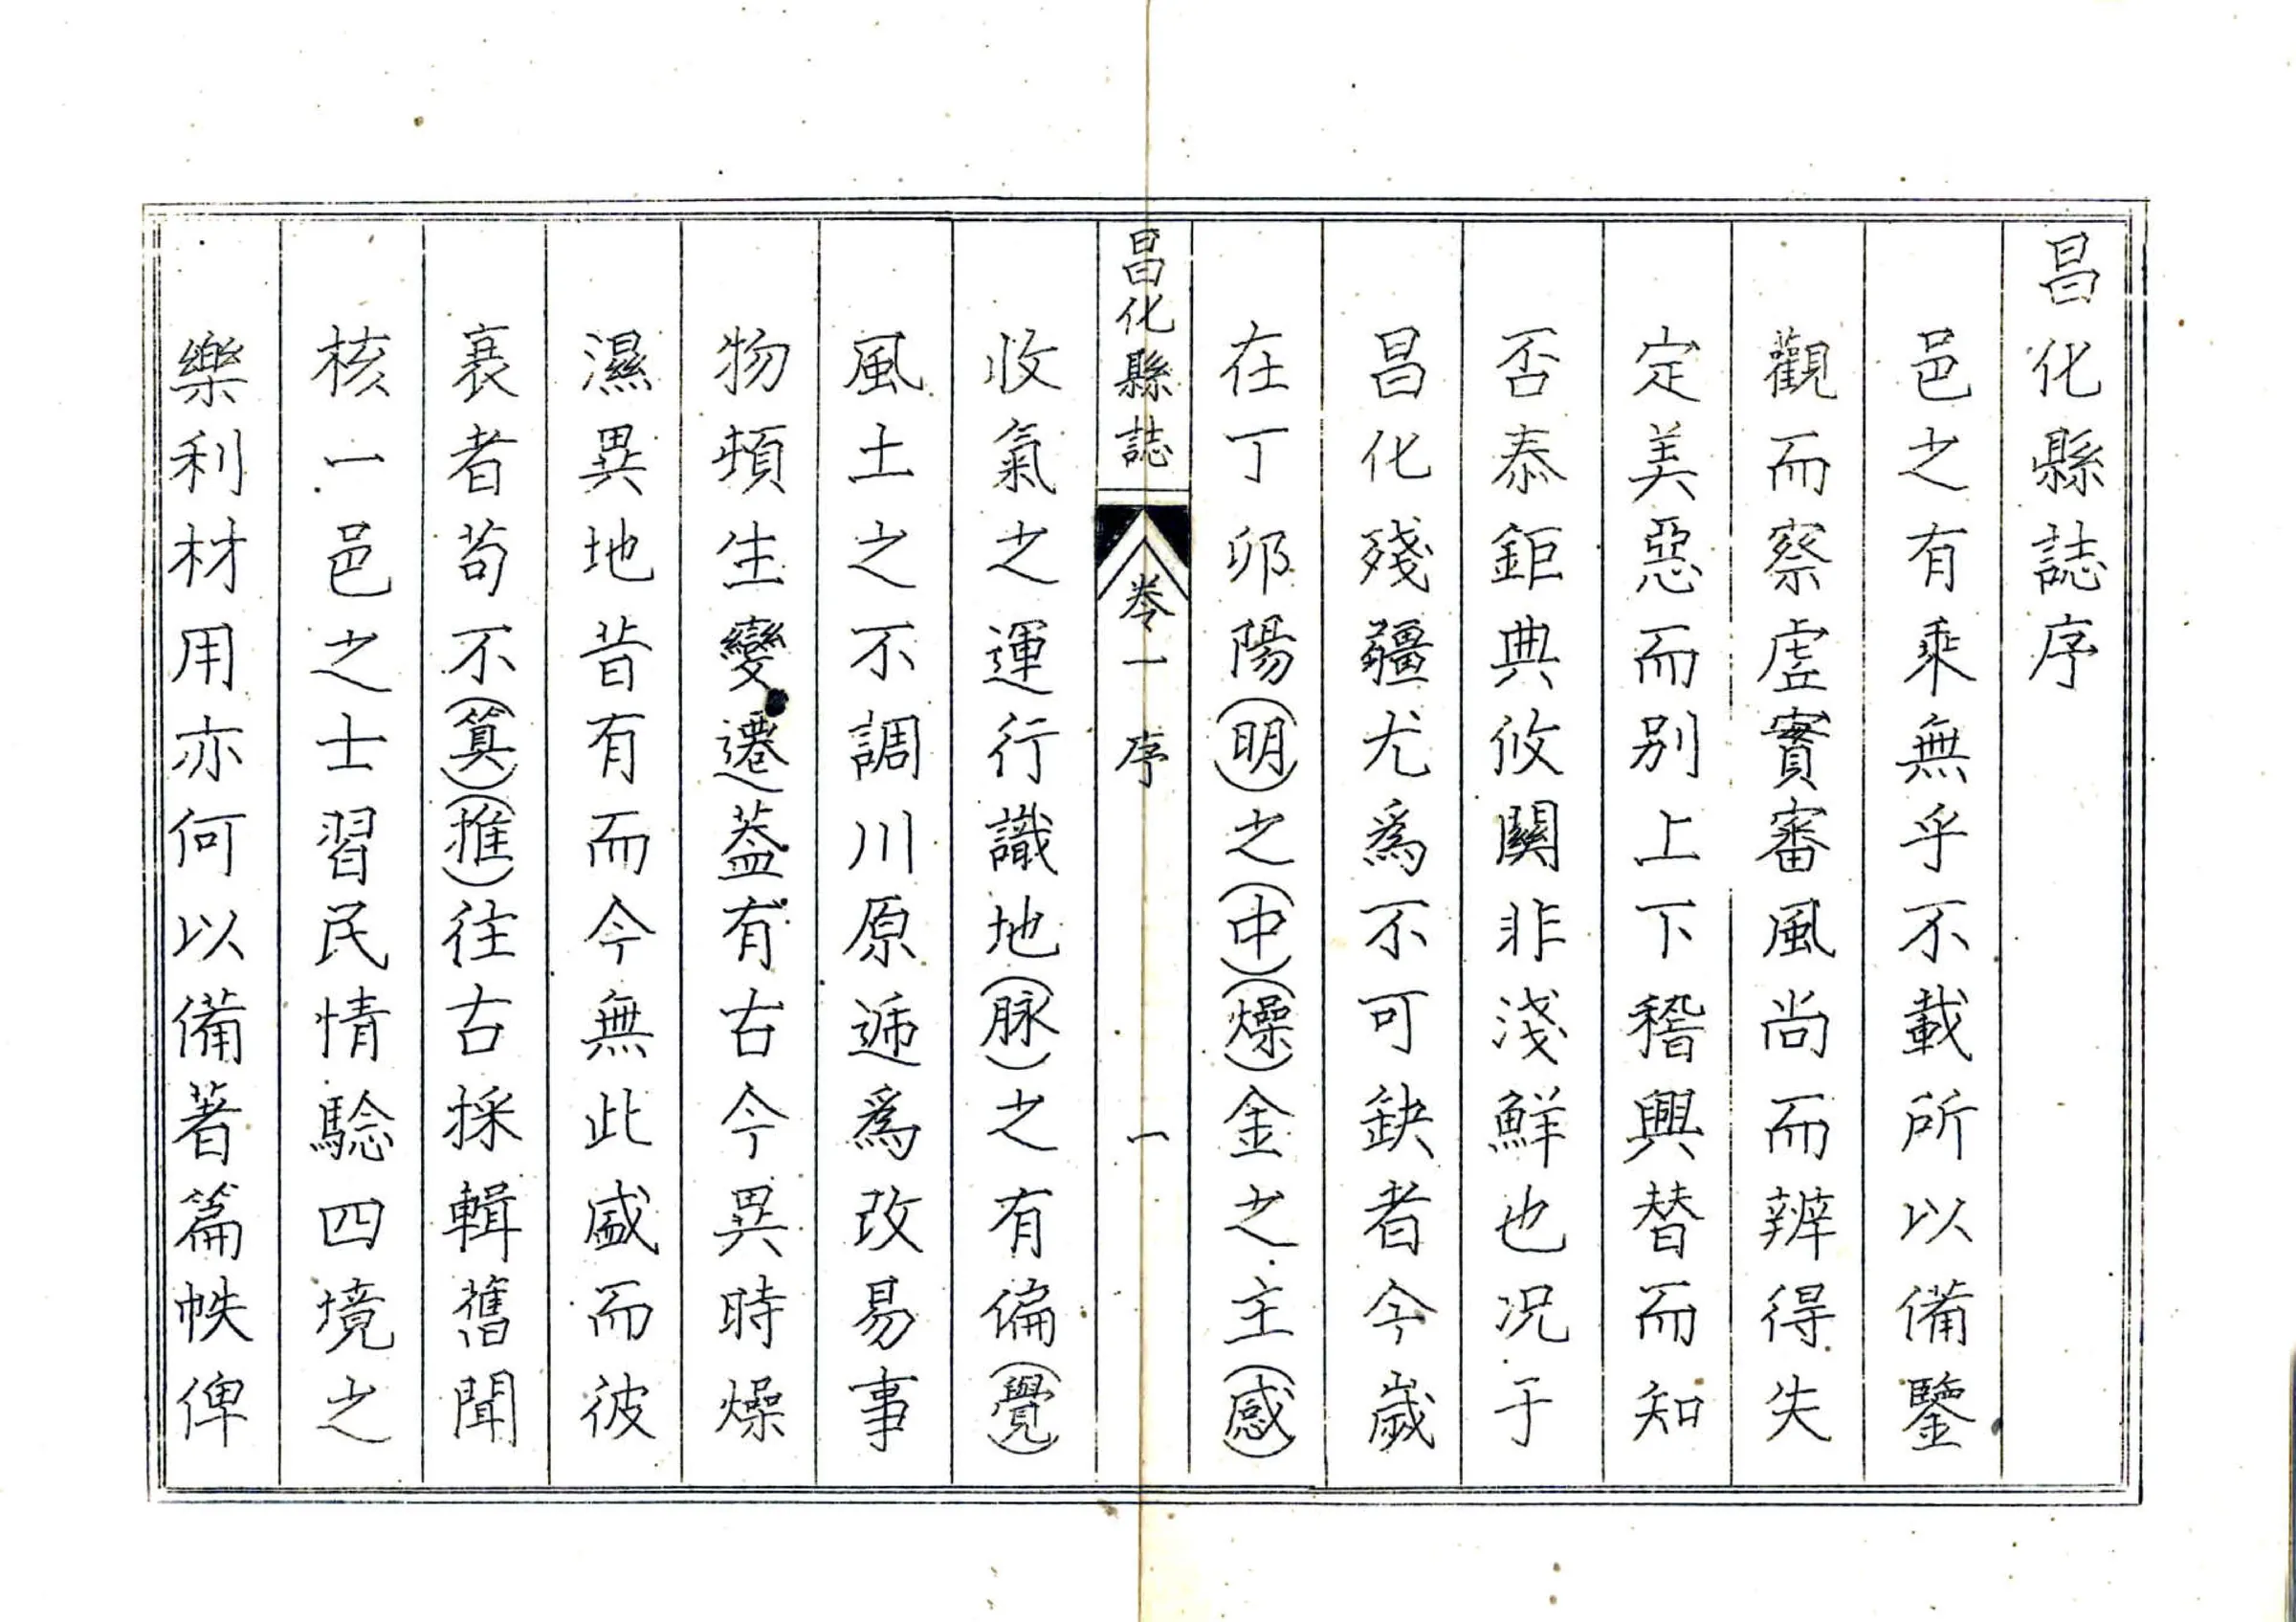 昌化縣誌序
邑之有乘無乎不載所以備鑒
觀而察虛實審風尚而辨得失
定美惡而別上下稽興替而知
否泰鉅典攸關非淺鮮也况于
昌化殘疆尤為不可缺者今歲
在丁卯陽(明)之(中)(燥)金之主(感)
昌化縣誌 卷一 序 一
收氣之運行識地(脉)之有偏(覺)
風土之不調川原遞為改易事
物頓生變遷蓋有古今異時燥
濕異地昔有而今無此盛而彼
衰者苟不(算)(推)往古採輯舊聞
核一邑之士習民情騐四境之
樂利材用亦何以備著篇帙俾